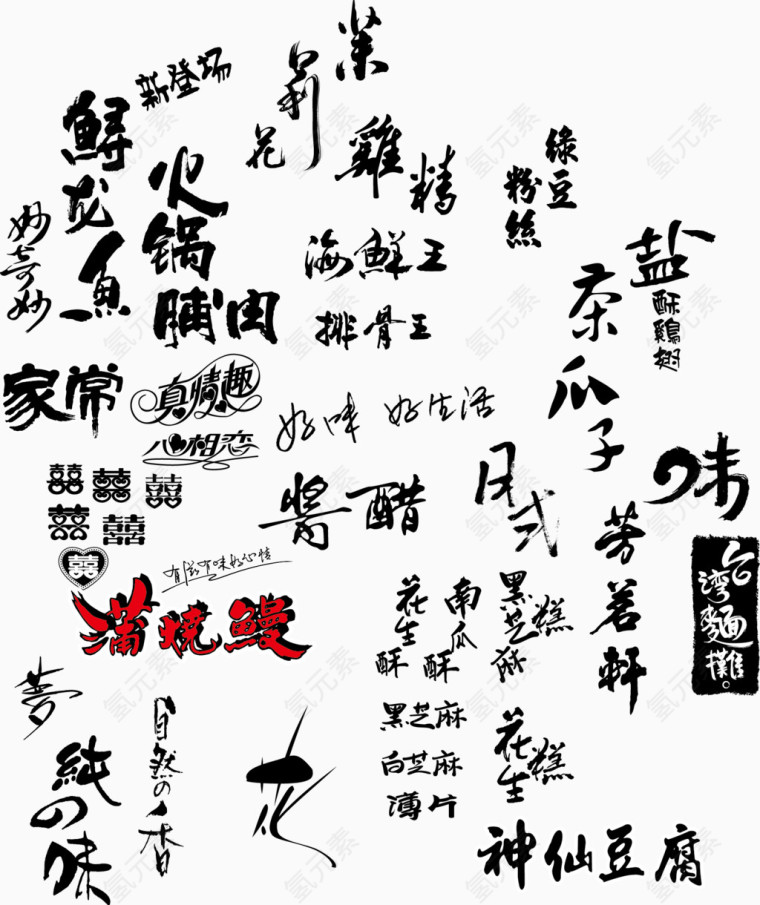 茉
莉
花
新登场
鲟龙鱼
火锅
脯肉
妙奇妙
雞精
海鮮王
排骨王
綠豆
粉絲
盐
酥雞翅
茶瓜子
家常
真情趣
心相恋
好味 好生活
囍 囍 囍
囍 囍
囍
醬醋
日式
味
芳茗軒
台灣麵攤。
有滋有味好心情
蒲燒鰻
花生酥
南瓜酥
黑芝麻糕
黑芝麻
白芝麻
薄片
花生糕
夢
純の味
自然の香
花
神仙豆腐
氢元素